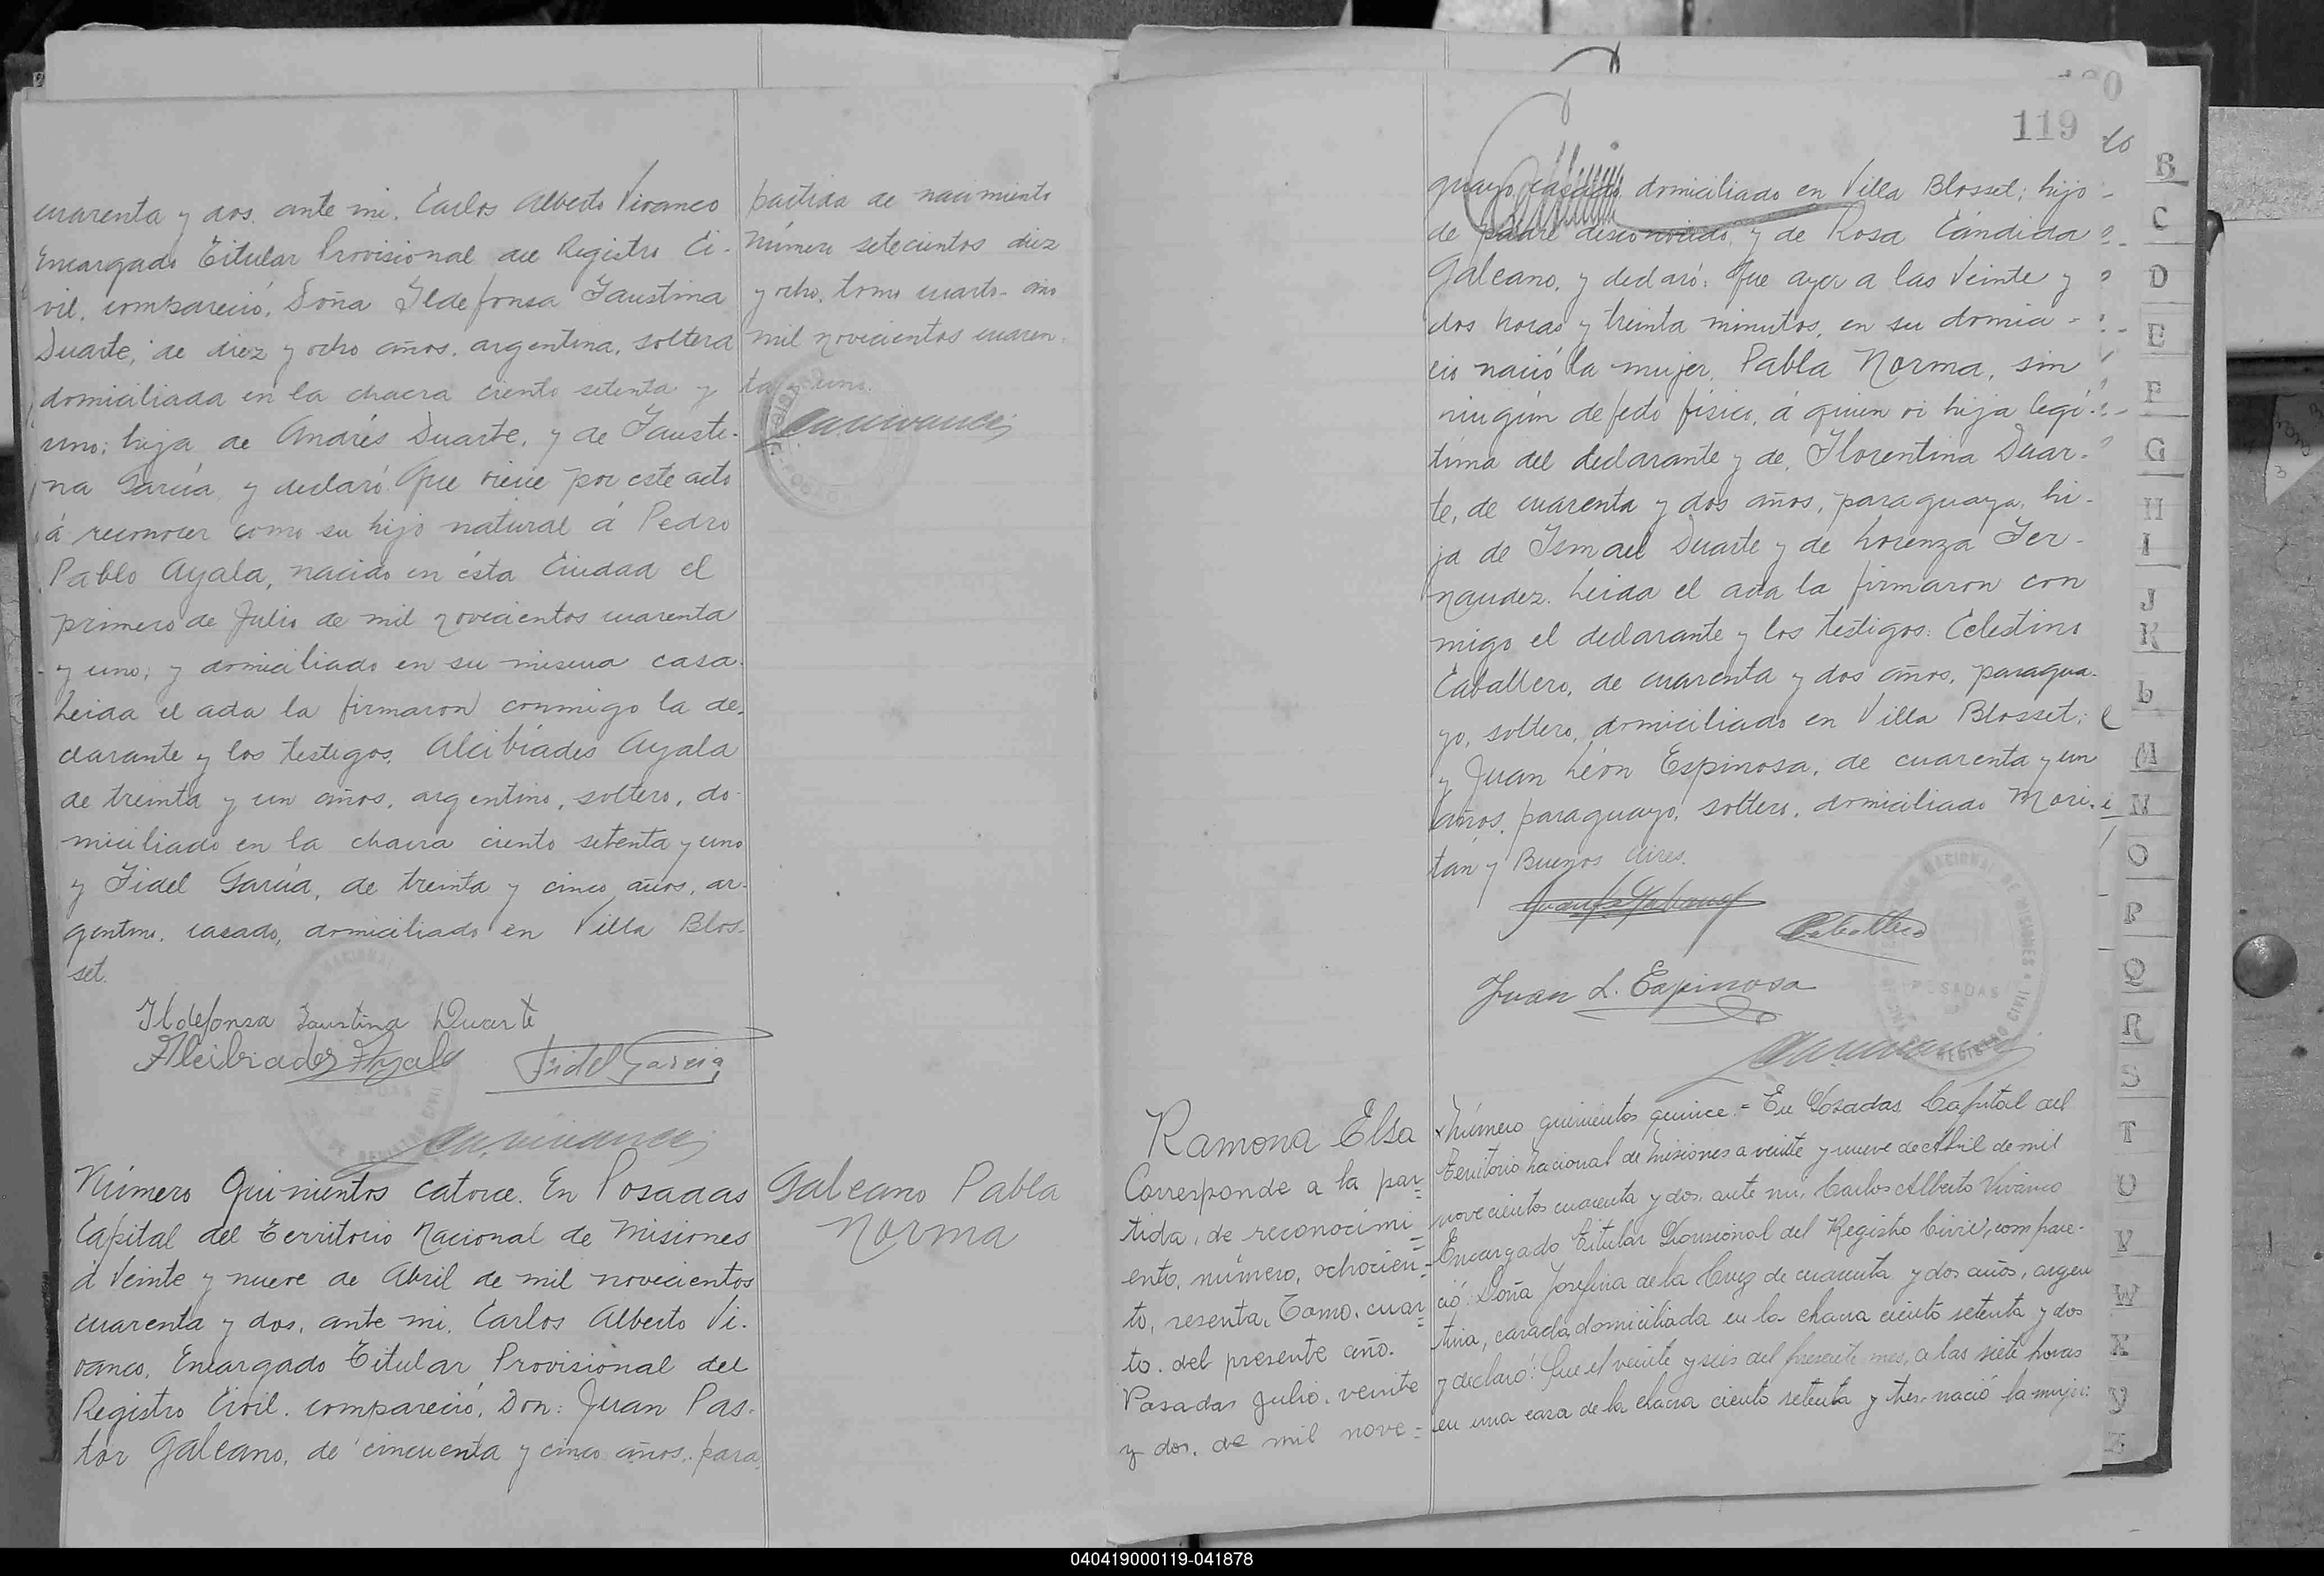 cuarenta y dos. ante mi. Carlos Alberto Vivanco
Encargado Titular Provisional del Registro Ci-
vil. compareció, Doña Ildefonsa Faustina
Duarte, de diez y ocho años. argentina, soltera
domiciliada en la chacra ciento setenta y
uno; hija de Andrés Duarte, y de Fausti-
na García, y declaró: Que viene por este acto
á reconocer como su hijo natural á Pedro
Pablo Ayala, nacido en ésta Ciudad el
primero de Julio de mil novecientos cuarenta
y uno; y domiciliado en su misma casa.
Leida el acta la firmaron conmigo la de-
clarante y los testigos, Alcibíades Ayala
de treinta y un años, argentino, soltero, do-
miciliado en la chacra ciento setenta y uno
y Fidel García, de treinta y cinco años, ar-
gentino, casado, domiciliado en Villa Blos-
set.
Ildefonsa Faustina Duarte
Alcibiades Ayala Fidel Garcia
Número Quinientos catorce. En Posadas
Capital del Territorio Nacional de Misiones
á Veinte y nueve de Abril de mil novecientos
cuarenta y dos, ante mi, Carlos Alberto Vi-
vanco, Encargado Titular Provisional del
Registro Civil. compareció, Don: Juan Pas-
tor Galeano, de cincuenta y cinco años, para
partida de nacimiento
Número setecientos diez
y ocho, tomo cuarto- año
mil novecientos cuaren-
ta y uno.
Galeano Pabla
Norma
119
guayo, casado, domiciliado en Villa Blosset; hijo
de padre desconocido, y de Rosa Cándida
Galeano, y declaró: Que ayer a las Veinte y
dos horas y treinta minutos, en su domici-
lio nació la mujer, Pabla Norma, sin
ningún defecto físico, á quien vi hija legí-
tima del declarante y de, Florentina Duar-
te, de cuarenta y dos años, paraguaya, hi-
ja de Ismael Duarte y de Lorenza Fer-
nandez. Leida el acta la firmaron con
migo el declarante y los testigos: Celestino
Caballero, de cuarenta y dos años, paragua-
yo, soltero, domiciliado en Villa Blosset;
y Juan León Espinosa, de cuarenta y un
años, paraguayo, soltero, domiciliado Mori-
tán y Buenos Aires.
Caballero
Juan L. Espinosa
Ramona Elsa
Corresponde a la par=
tida, de reconocimi=
ento, número, ochocien=
to, sesenta, Tomo, cuar=
to. del presente año.
Posadas Julio, veinte
y dos, de mil nove=
Número quinientos quince.= En Posadas Capital del
Territorio Nacional de Misiones a veinte y nueve de Abril de mil
novecientos cuarenta y dos, ante mi, Carlos Alberto Vivanco
Encargado Titular Provisional del Registro Civil, compare-
ció: Doña Josefina de la Cruz de cuarenta y dos años, argen
tina, casada, domiciliada en la chacra ciento setenta y dos
y declaró: Que el veinte y seis del presente mes, a las siete horas
en una casa de la chacra ciento setenta y tres- nació la mujer:
B
C
D
E
F
G
H
I
J
K
L
M
N
O
P
Q
R
S
T
U
V
W
X
Y
Z
040419000119-041878